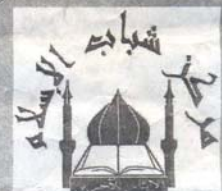 مركز شباب الإسلام